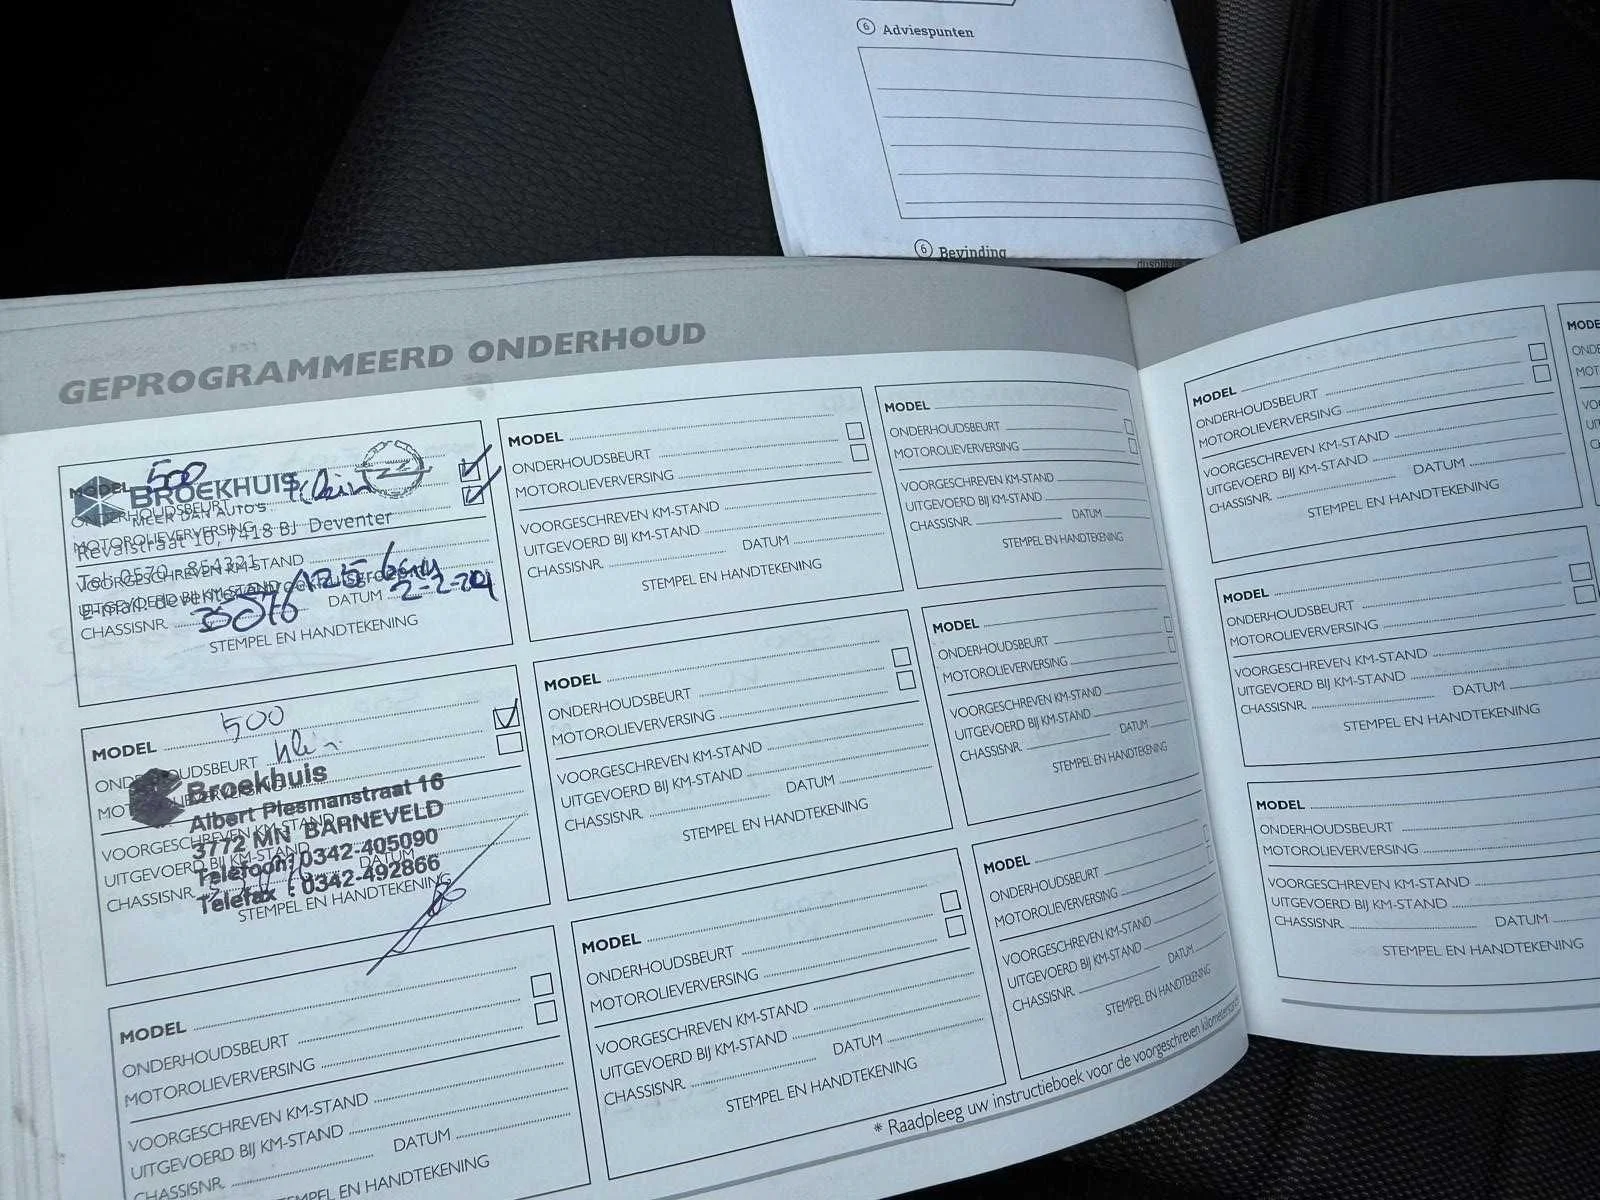 6 Adviespunten
6 Bevinding
GEPROGRAMMEERD ONDERHOUD
MODEL 500
BROEKHUIS Klein
MEER DAN AUTO'S
ONDERHOUDSBEURT
MOTOROLIEVERVERSING
Revalstraat 10, 7418 BJ Deventer
VOORGESCHREVEN KM-STAND
Tel: 0570 - 854321
UITGEVOERD BIJ KM-STAND
CHASSISNR. DATUM
STEMPEL EN HANDTEKENING
MODEL 500
ONDERHOUDSBEURT klein
Broekhuis
Albert Plesmanstraat 16
VOORGESCHREVEN KM-STAND
3772 MN BARNEVELD
UITGEVOERD BIJ KM-STAND DATUM
Telefoon: 0342-405090
CHASSISNR.
Telefax : 0342-492866
STEMPEL EN HANDTEKENING
MODEL
ONDERHOUDSBEURT
MOTOROLIEVERVERSING
VOORGESCHREVEN KM-STAND
UITGEVOERD BIJ KM-STAND
DATUM
CHASSISNR.
STEMPEL EN HANDTEKENING
MODEL
ONDERHOUDSBEURT
MOTOROLIEVERVERSING
VOORGESCHREVEN KM-STAND
UITGEVOERD BIJ KM-STAND
CHASSISNR. DATUM
STEMPEL EN HANDTEKENING
MODEL
ONDERHOUDSBEURT
MOTOROLIEVERVERSING
VOORGESCHREVEN KM-STAND
UITGEVOERD BIJ KM-STAND
CHASSISNR. DATUM
STEMPEL EN HANDTEKENING
MODEL
ONDERHOUDSBEURT
MOTOROLIEVERVERSING
VOORGESCHREVEN KM-STAND
UITGEVOERD BIJ KM-STAND
CHASSISNR. DATUM
STEMPEL EN HANDTEKENING
MODEL
ONDERHOUDSBEURT
MOTOROLIEVERVERSING
VOORGESCHREVEN KM-STAND
UITGEVOERD BIJ KM-STAND
CHASSISNR. DATUM
STEMPEL EN HANDTEKENING
MODEL
ONDERHOUDSBEURT
MOTOROLIEVERVERSING
VOORGESCHREVEN KM-STAND
UITGEVOERD BIJ KM-STAND
CHASSISNR. DATUM
STEMPEL EN HANDTEKENING
MODEL
ONDERHOUDSBEURT
MOTOROLIEVERVERSING
VOORGESCHREVEN KM-STAND
UITGEVOERD BIJ KM-STAND
CHASSISNR. DATUM
STEMPEL EN HANDTEKENING
* Raadpleeg uw instructieboek voor de voorgeschreven
MODEL
ONDERHOUDSBEURT
MOTOROLIEVERVERSING
VOORGESCHREVEN KM-STAND
UITGEVOERD BIJ KM-STAND
CHASSISNR. DATUM
STEMPEL EN HANDTEKENING
MODEL
ONDERHOUDSBEURT
MOTOROLIEVERVERSING
VOORGESCHREVEN KM-STAND
UITGEVOERD BIJ KM-STAND
CHASSISNR. DATUM
STEMPEL EN HANDTEKENING
MODEL
ONDERHOUDSBEURT
MOTOROLIEVERVERSING
VOORGESCHREVEN KM-STAND
UITGEVOERD BIJ KM-STAND
CHASSISNR. DATUM
STEMPEL EN HANDTEKENING